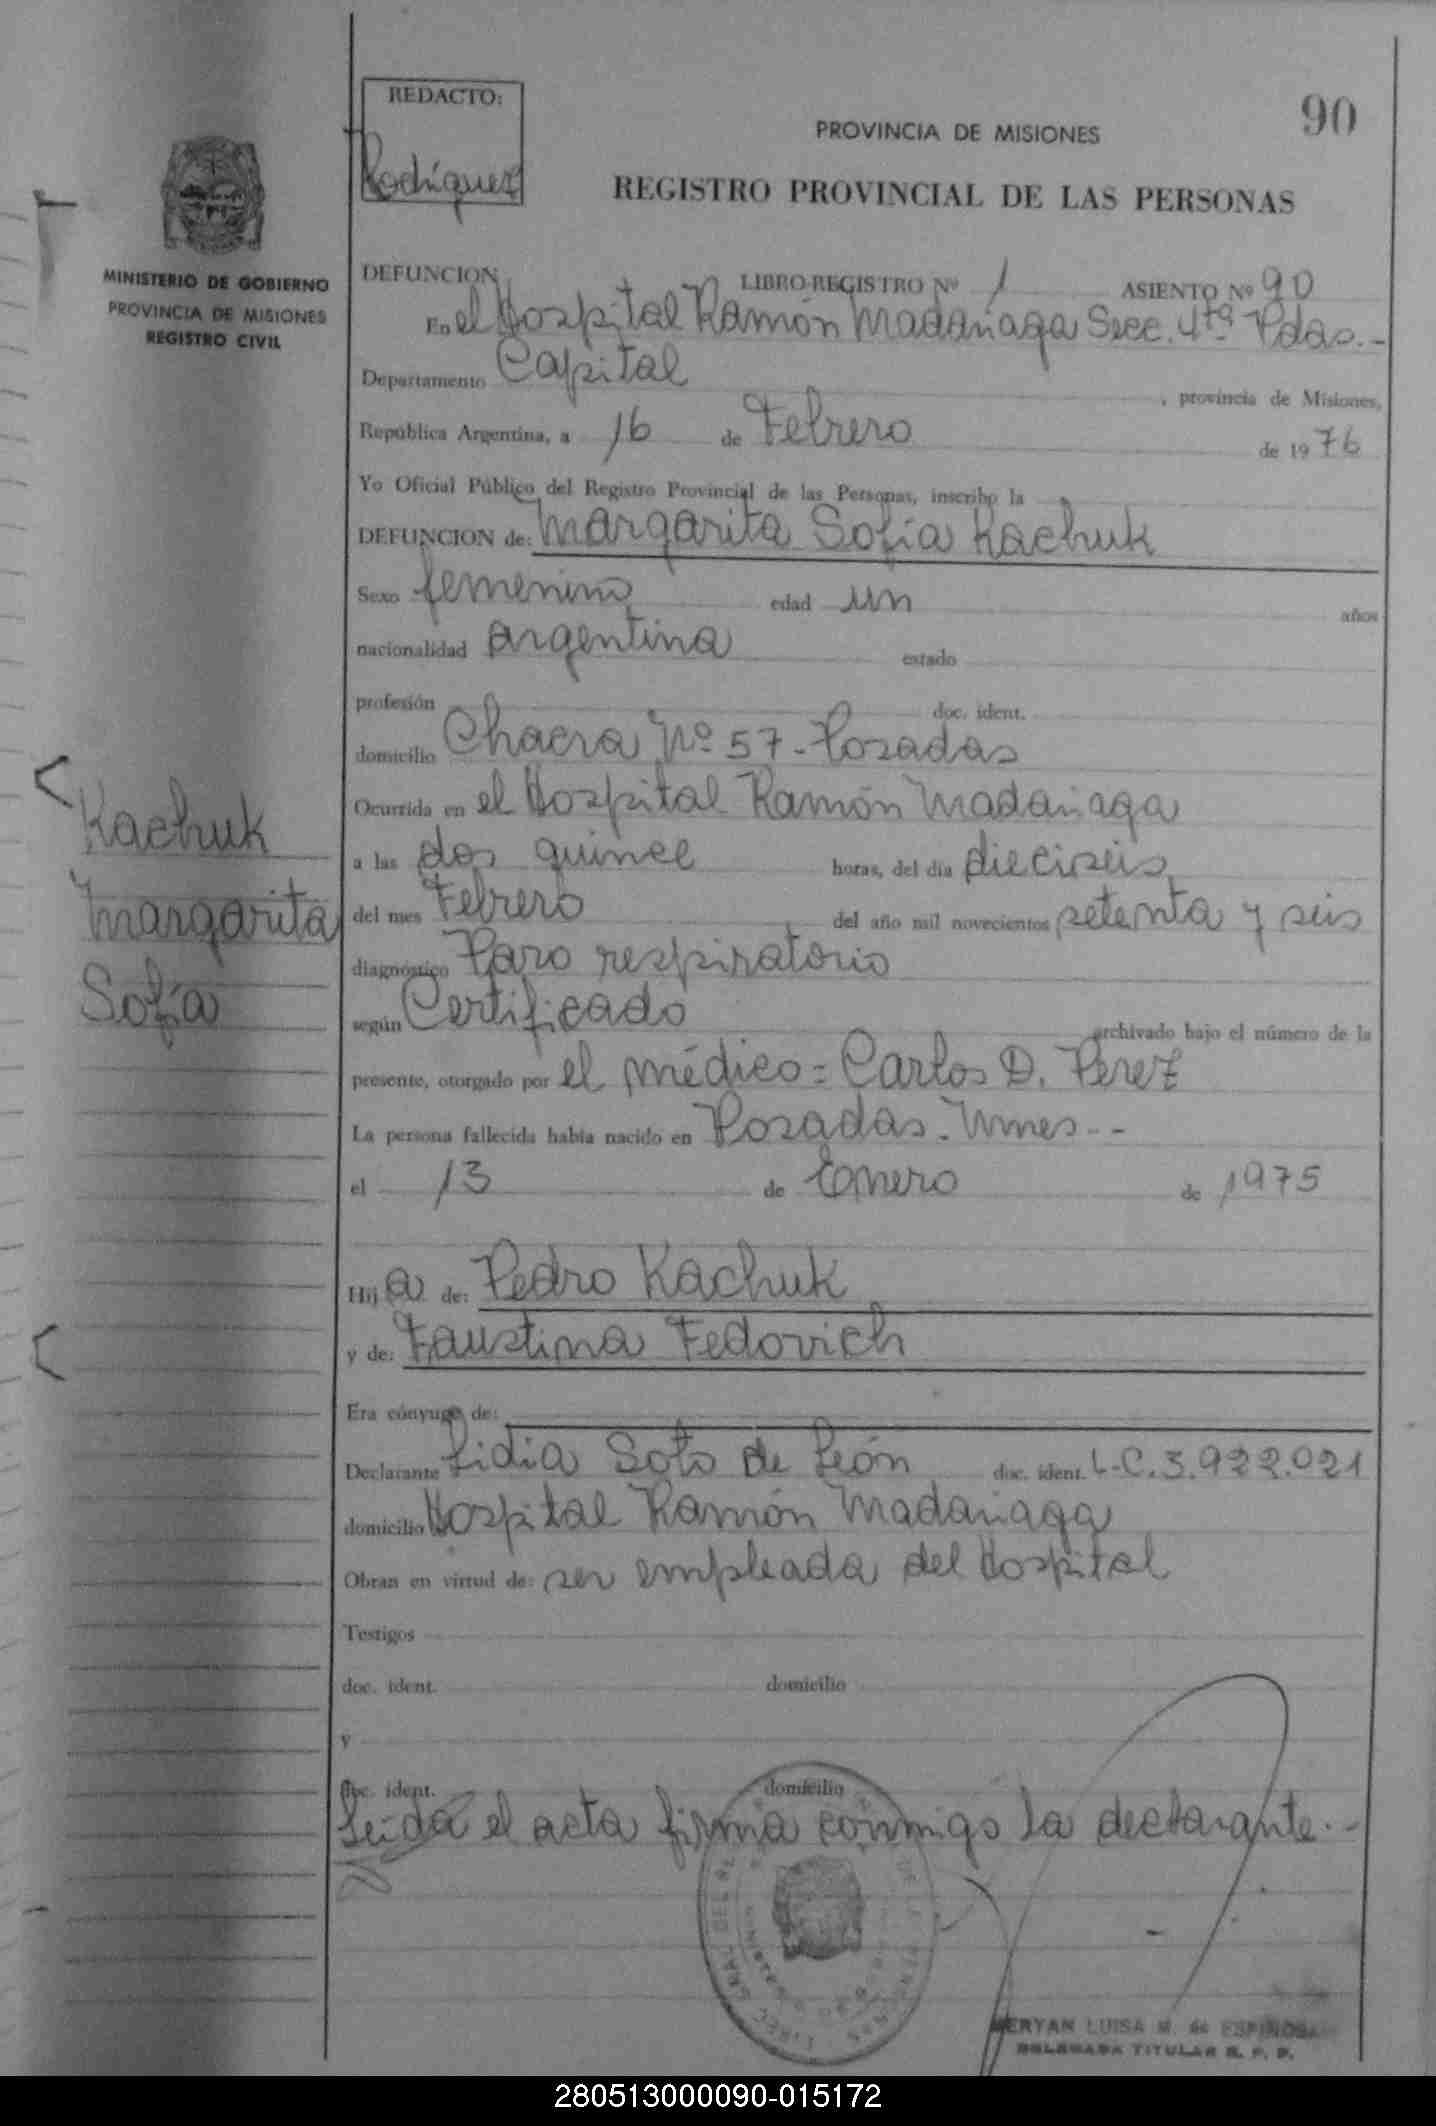 REDACTO:
Rodríguez
90
PROVINCIA DE MISIONES
REGISTRO PROVINCIAL DE LAS PERSONAS
MINISTERIO DE GOBIERNO
PROVINCIA DE MISIONES
REGISTRO CIVIL
DEFUNCION LIBRO-REGISTRO Nº 1 ASIENTO Nº 90
En el Hospital Ramón Madariaga Secc. 4ta Pdas.-
Departamento Capital, provincia de Misiones,
República Argentina, a 16 de Febrero de 1976
Yo Oficial Público del Registro Provincial de las Personas, inscribo la
DEFUNCION de: Margarita Sofía Kachuk
Sexo femenino edad un años
nacionalidad argentina estado
profesión doc. ident.
domicilio Chacra Nº 57-Posadas
Ocurrida en el Hospital Ramón Madariaga
a las dos quince horas, del día dieciseis
del mes Febrero del año mil novecientos setenta y seis
diagnóstico Paro respiratorio
según Certificado archivado bajo el número de la
presente, otorgado por el médico= Carlos D. Perez
La persona fallecida había nacido en Posadas. Mnes--
el 13 de Enero de 1975
Hija de: Pedro Kachuk
y de: Faustina Fedovich
Era cónyuge de:
Declarante Lidia Soto de León doc. ident. L-C.3.922.021
domicilio Hospital Ramón Madariaga
Obran en virtud de: ser empleada del Hospital
Testigos
doc. ident. domicilio
y
doc. ident. domicilio
Leida el acta firma conmigo la declarante.-
Kachuk
Margarita
Sofía
MERYAN LUISA M. de ESPINOSA
DELEGADA TITULAR R. P. P.
280513000090-015172